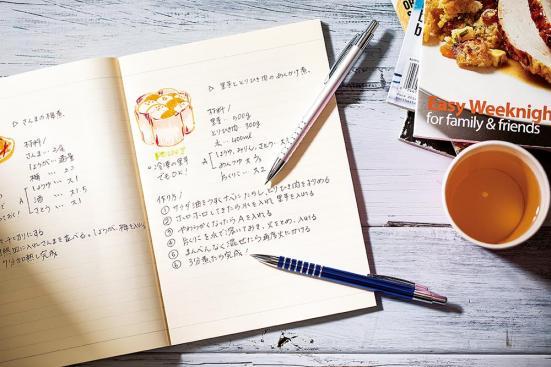 ▷ さんまの梅煮。
材料/
さんま… 2尾
しょうが… 適量
梅 … 2コ
しょうゆ … 大1
酒 … 大1.5
さとう … 大1
7分加熱し完成
▷ 里芋ととりひき肉のあんかけ煮。
材料/
里芋… 500g
とりひき肉 300g
水… 400ml
A しょうゆ、みりん、さとう… 大
めんつゆ 大
片くりこ… 大2
POINT
冷凍の里芋
でもOK!
作り方/
① サラダ油をうすくナベにたらし、とりひき肉をいためる
② ポロポロしてきたら水を入れ 里芋を入れる
③ やわらかくなったらAを入れる
④ 片くりこを水で溶いておき、火をとめ、入れる
⑤ まんべんなく混ぜたら再度火にかける
⑥ 3分煮たら完成!
Easy Weeknigh
for family & friends